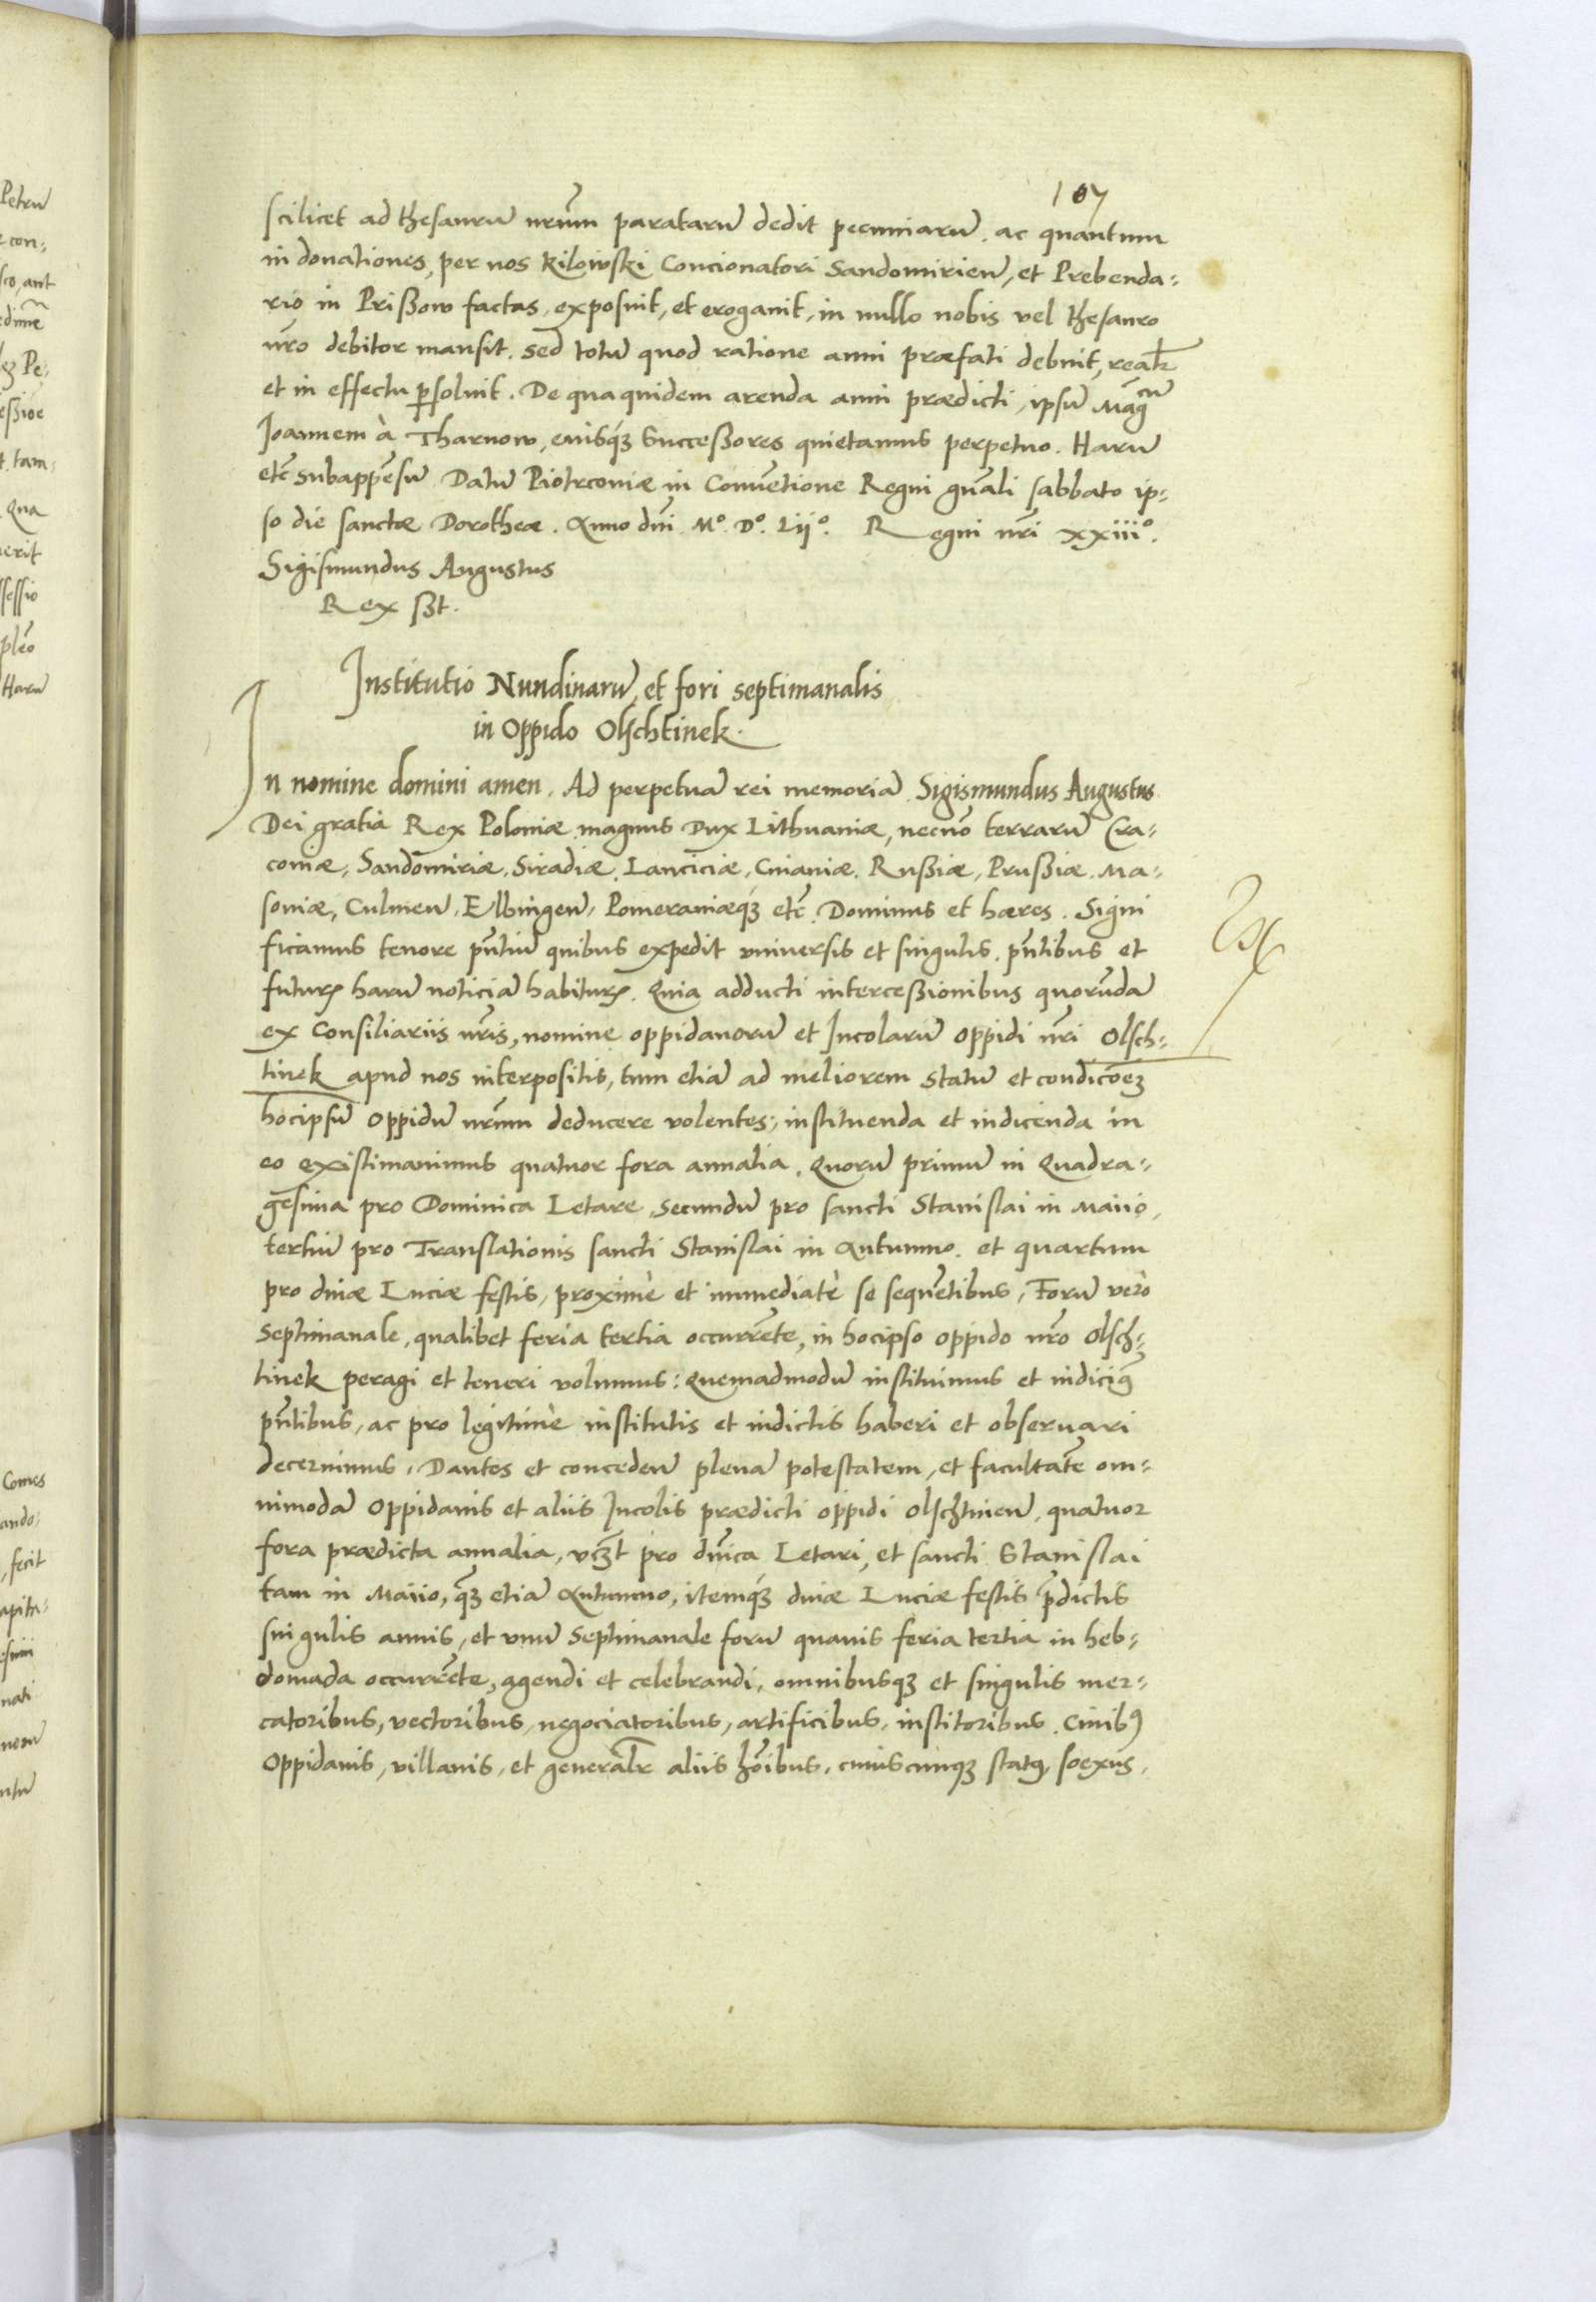 107
scilicet ad thesaurū nr̄um paratarū dedit pecuniarū. ac quantum
in donationes, per nos Kilowski Concionatori Sandomirien̄, et Prebenda=
rio in Prißow factas, exposuit, et erogauit, in nullo nobis vel thesauro
nr̄o debitor mansit. sed totū quod ratione anni præfati debuit, realr̄
et in effectu psoluit. De qua quidem arenda anni prædicti, ipsū Magcū
Joannem à Tharnow, eiusq́ꝫ Succeßores quietamus perpetuo. Harū
etc̄ subappēsū Datū Piotrcouiæ in Conuētione Regni gn̄ali sabbato ip=
so die sanctæ Dorotheæ. Anno dn̄i M.º D.º Lijº. Regni nr̄i xxiiiº.
Sigismundus Augustus
Rex sꝫt.
Institutio Nundinarū, et fori septimanalis
in Oppido Olschtinek.
In nomine domini amen. Ad perpetuā rei memoriā. Sigismundus Augustus
Dei gratia Rex Poloniæ magnus Dux Lithuaniæ, necnō terrarū Cra=
couiæ, Sandomiriæ, Siradiæ, Lanciciæ, Cuiauiæ, Rußiæ, Prußiæ, Ma=
souiæ, Culmen̄, Elbingen̄, Pomeraniæq́ꝫ etc̄. Dominus et hæres. Signi
ficamus tenore pn̄tiū quibus expedit vniuersis et singulis, pn̄tibus et
futurꝭ harū noticiā habiturꝭ. Quia adducti interceßionibus quorūdā
ex Consiliariis nr̄is, nomine oppidanorū et Incolarū oppidi nr̄i Olsch=
tinek apud nos interpositis, tum etiā ad meliorem statū et condicōeꝫ
hocipsū oppidū nr̄um deducere volentes, instituenda et indicenda in
eo existimauimus quatuor fora annalia. Quorū primū in Quadra=
gesima pro Dominica Letare, secundū pro sancti Stanislai in Maiio,
tertiū pro Translationis sancti Stanislai in Autumno. et quartum
pro diuæ Luciæ festis, proximè et immediatè se sequētibus, Forū verò
Septimanale, qualibet feria tertia occurrēte, in hocipso oppido nr̄o Olsch=
tinek peragi et teneri volumus: Quemadmodū instituimus et indicimꝰ
pn̄tibus, ac pro legitimè institutis et indictis haberi et obseruari
decernimus, Dantes et conceden̄ plenā potestatem, et facultatē om=
nimodā Oppidanis et aliis Incolis prædicti oppidi Olschtinen̄, quatuor
fora prædicta annalia, vcꝫt pro dn̄ica Letari, et sancti Stanislai
tam in Maiio, qꝫ etiā Autumno, itemq́ꝫ diuæ Luciæ festis p̄dictis
singulis annis, et vnū Septimanale forū quauis feria tertia in heb=
domada occurrēte, agendi et celebrandi, omnibusqꝫ et singulis mer=
catoribus, vectoribus, negociatoribus, artificibus, institoribus, Ciuibꝰ
Oppidanis, villanis, et generalr̄ aliis hoībus, cuiuscunqꝫ statꝰ, sexus,